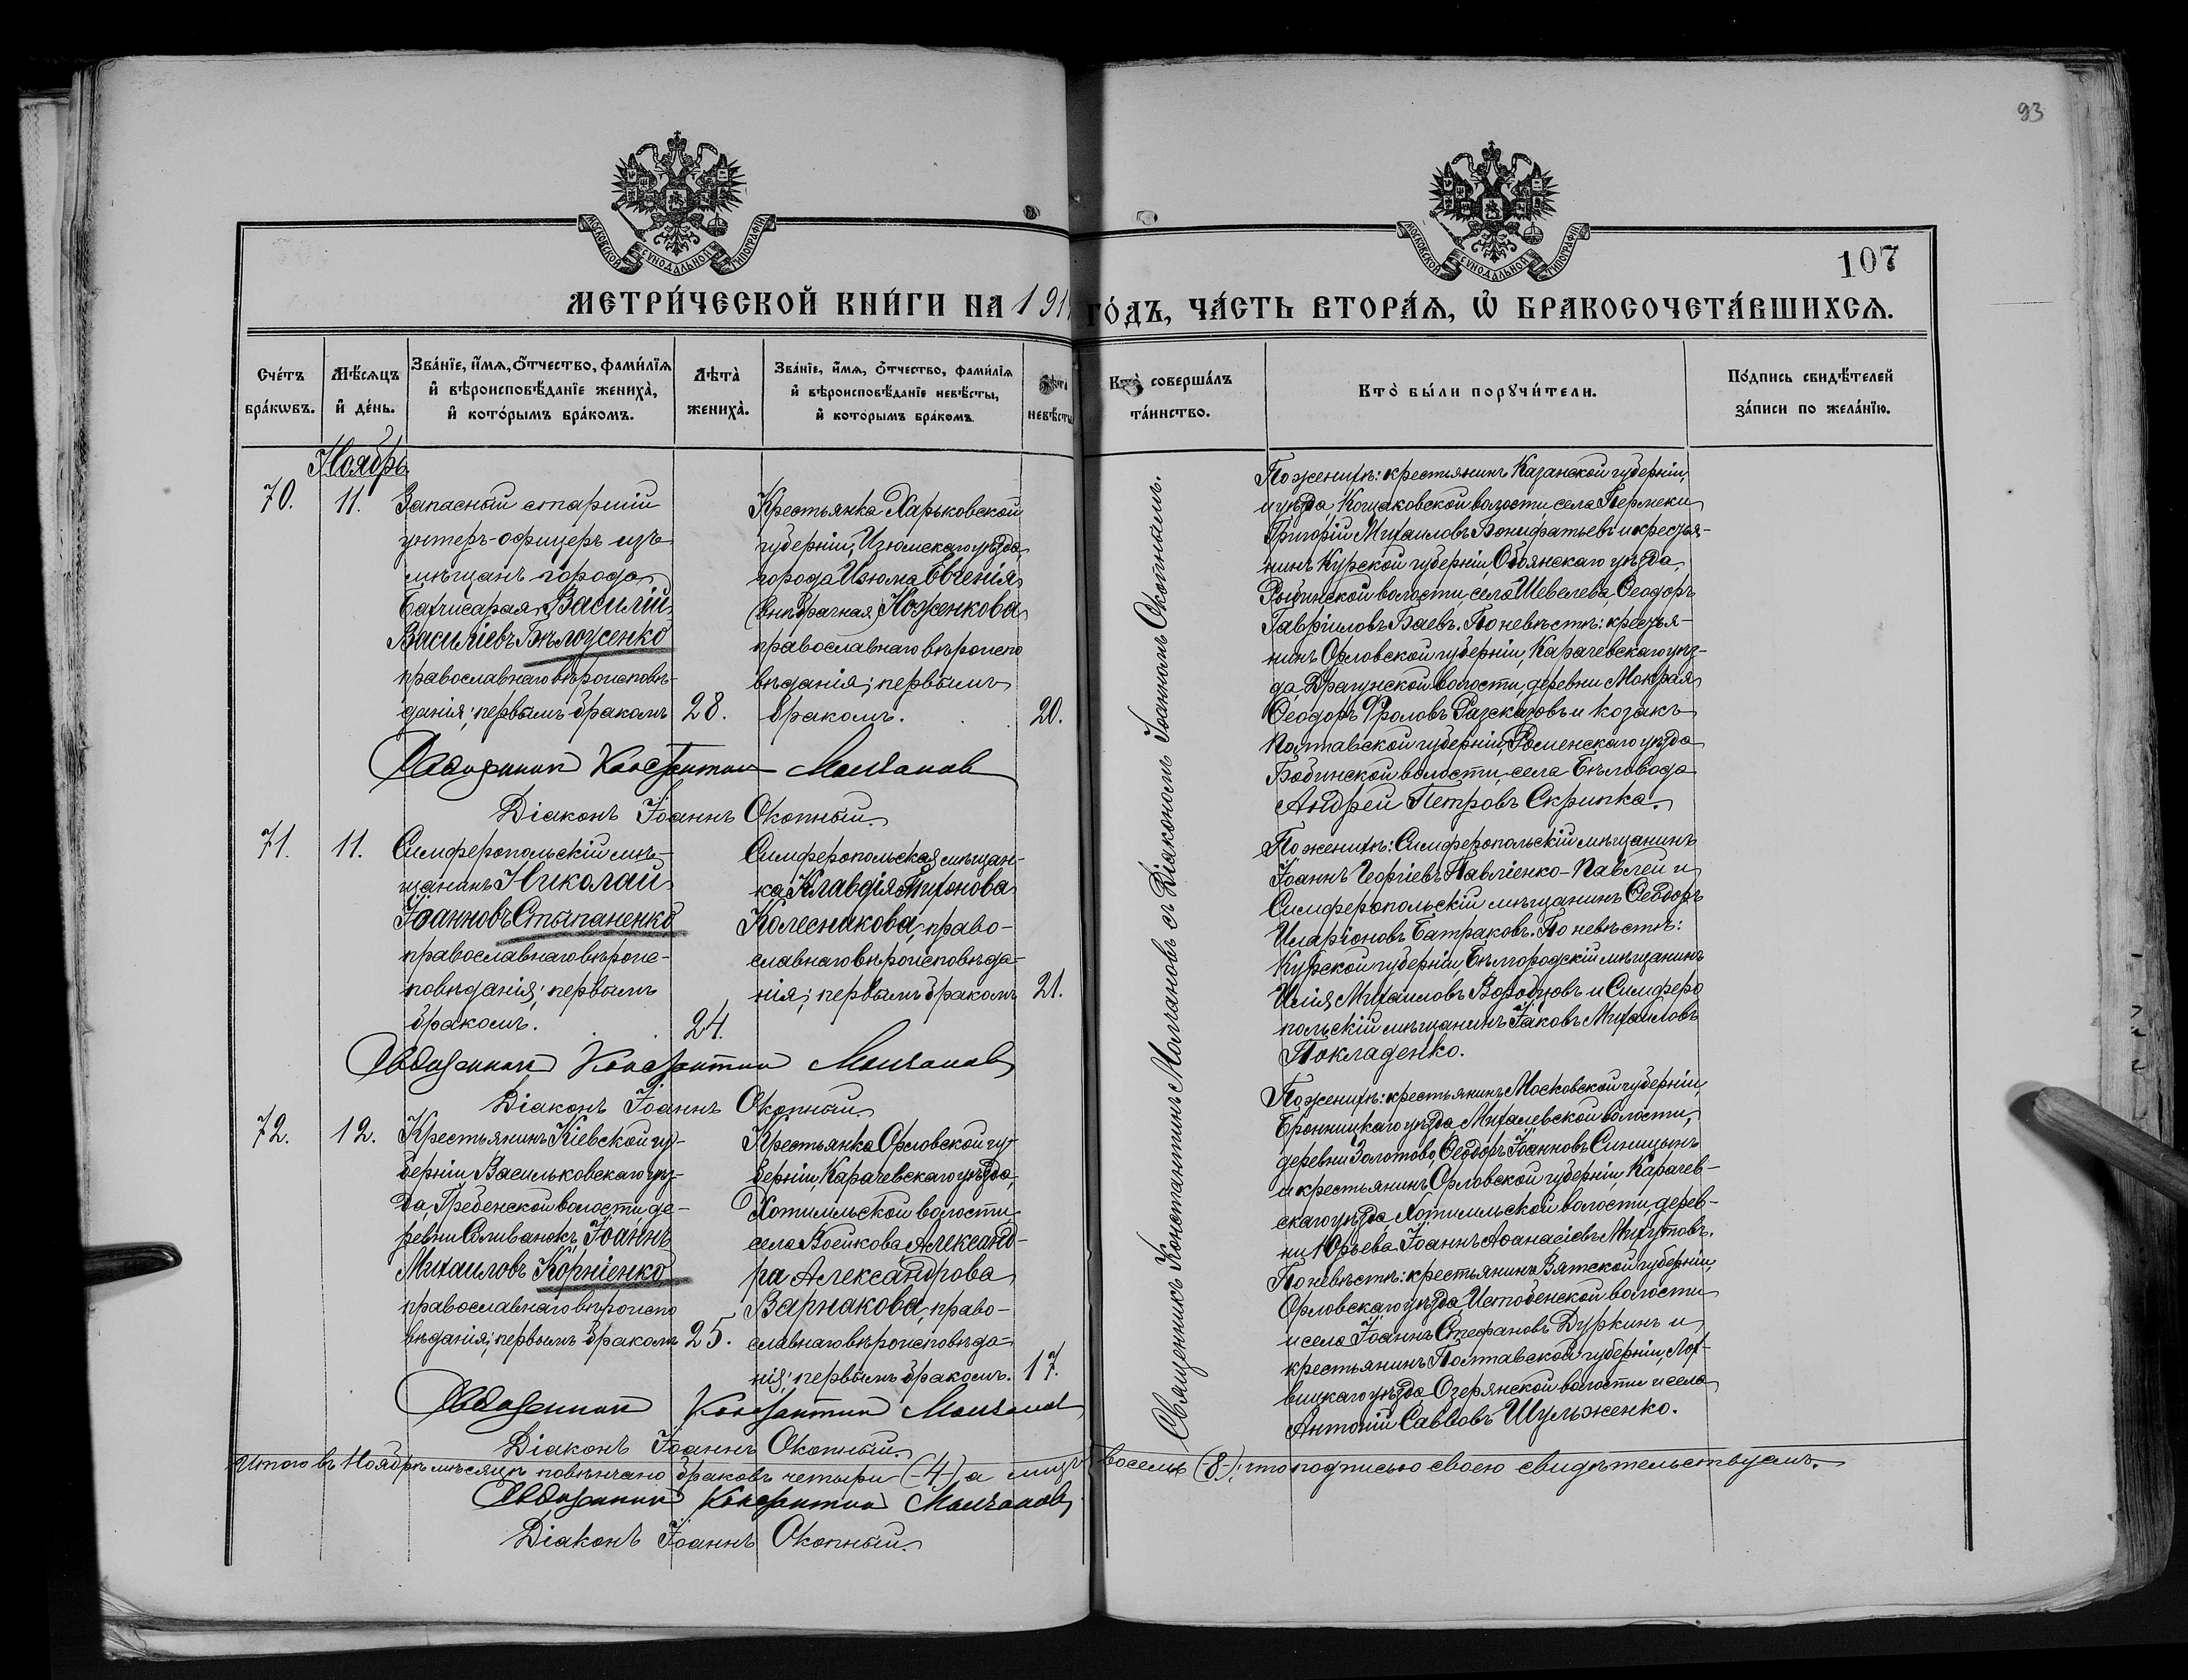 93
МОСКОВСКОЙ СУНОДАЛЬНОЙ ТИПОГРАФІИ
МОСКОВСКОЙ СУНОДАЛЬНОЙ ТИПОГРАФІИ
107
МЕТРИ́ЧЕСКОЙ КНИ́ГИ НА 191
ГО́ДЪ, ЧА́СТЬ ВТОРА́Ѧ, Ѡ҆ БРАКОСОЧЕТА́ВШИХСѦ.
Сче́тъ бра́кѡвъ.
Мѣ́сѧцъ и҆ де́нь.
Зва́нїе, и҆́мѧ, ѻ҆́тчество, фами́лїѧ и҆ вѣроисповѣ́данїе жениха̀, и҆ кото́рымъ бра́комъ.
Лѣта̀ жениха̀.
Зва́нїе, и҆́мѧ, ѻ҆́тчество, фами́лїѧ и҆ вѣроисповѣ́данїе невѣ́сты, и҆ кото́рымъ бра́комъ
Лѣта̀ невѣ́сты
Кто̀ соверша́лъ та́инство.
Кто̀ бы́ли порꙋчи́тели.
По́дпись свидѣ́телей за́писи по жела́нїю.
Ноябрь
70.
11.
Запасный старшій
унтеръ-офицеръ изъ
мѣщанъ города
Бахчисарая Василій
Василіевъ Бѣлоусенко
православнаго вѣроисповѣ-
данія; первымъ бракомъ
28.
Крестьянка Харьковской
губерніи, Изюмскаго уѣзда
города Изюма Евгенія
(внѣбрачная) Ноженкова
православнаго вѣроиспо
вѣданія; первымъ
бракомъ.
20.
Священникъ Константинъ Молчановъ съ Діакономъ Іоанномъ Окопнымъ.
По женихѣ: крестьянинъ Казанской губерніи,
и уѣзда, Кощаковской волости села
Григорій Михаиловъ Вонифатьевъ и крестья-
нинъ Курской губерніи, Обоянскаго уѣзда,
волости, села Шевелева, Ѳеодоръ
Гавріиловъ Баевъ. По невѣстѣ: крестья-
нинъ Орловской губерніи, Карачевскаго уѣз-
да, Драгунской волости, деревни Мокрая
Ѳеодоръ Фроловъ Разсказовъ и козакъ
Полтавской губерніи, Роменскаго уѣзда
волости, села Бѣловода
Андрей Петровъ Скрипка.
Священникъ Константин Молчанов
Діаконъ Іоаннъ Окопный.
71.
11.
Симферопольскій мѣ-
щанинъ Николай
Іоанновъ Стыпаненко
православнаго вѣроис-
повѣданія; первымъ
бракомъ.
24.
Симферопольская мѣщан-
ка Клавдія Тихонова
Колесникова, право-
славнаго вѣроисповѣда-
нія; первымъ бракомъ
21.
По женихѣ: Симферопольскій мѣщанинъ
Іоаннъ Георгіевъ Павліенко-Павлей и
Симферопольскій мѣщанинъ Ѳеодоръ
Иларіоновъ Батраковъ. По невѣстѣ:
Курской губерніи, Бѣлгородскій мѣщанинъ
Илія Михаиловъ и Симферо
польскій мѣщанинъ Іаковъ Михаиловъ
Покладенко.
Священникъ Константин Молчанов
Діаконъ Іоаннъ Окопный.
72.
12.
Крестьянинъ Кіевской гу-
берніи Васильковскаго уѣз-
да, Гребенской волости, де-
ревни Соливонокъ Іоаннъ
Михаиловъ Корніенко
православнаго вѣроиспо
вѣданія; первымъ бракомъ
25.
Крестьянка Орловской гу-
берніи, Карачевскаго уѣзда,
Хотимльской волости
села Воейкова, Александ-
ра Александрова
Варнакова, право-
славнаго вѣроисповѣда-
нія; первымъ бракомъ.
17.
По женихѣ: крестьянинъ Московской губерніи,
Бронницкаго уѣзда, Михалевской волости,
деревни Золотово, Ѳеодоръ Іоанновъ Синицынъ
и крестьянинъ Орловской губерніи, Карачев-
скаго уѣзда, Хотимльской волости, дерев-
ни Юрьева Іоаннъ Аѳанасіевъ Михутовъ.
По невѣстѣ: крестьянинъ Вятской губерніи,
Орловскаго уѣзда, Истобенской волости
и села Іоаннъ Стефановъ Дуркинъ и
крестьянинъ Полтавской губерніи, Лох-
вицкаго уѣзда Озерянской волости и села
Антоній Саввовъ Шульженко.
Священникъ Константин Молчанов
Діаконъ Іоаннъ Окопный.
Итого въ Ноябрѣ мѣсяцѣ повѣнчано браковъ четыри (-4-), а лицъ восемь (-8-); что подписью своею свидѣтельствуемъ.
Священникъ Константин Молчанов
Діаконъ Іоаннъ Окопный.